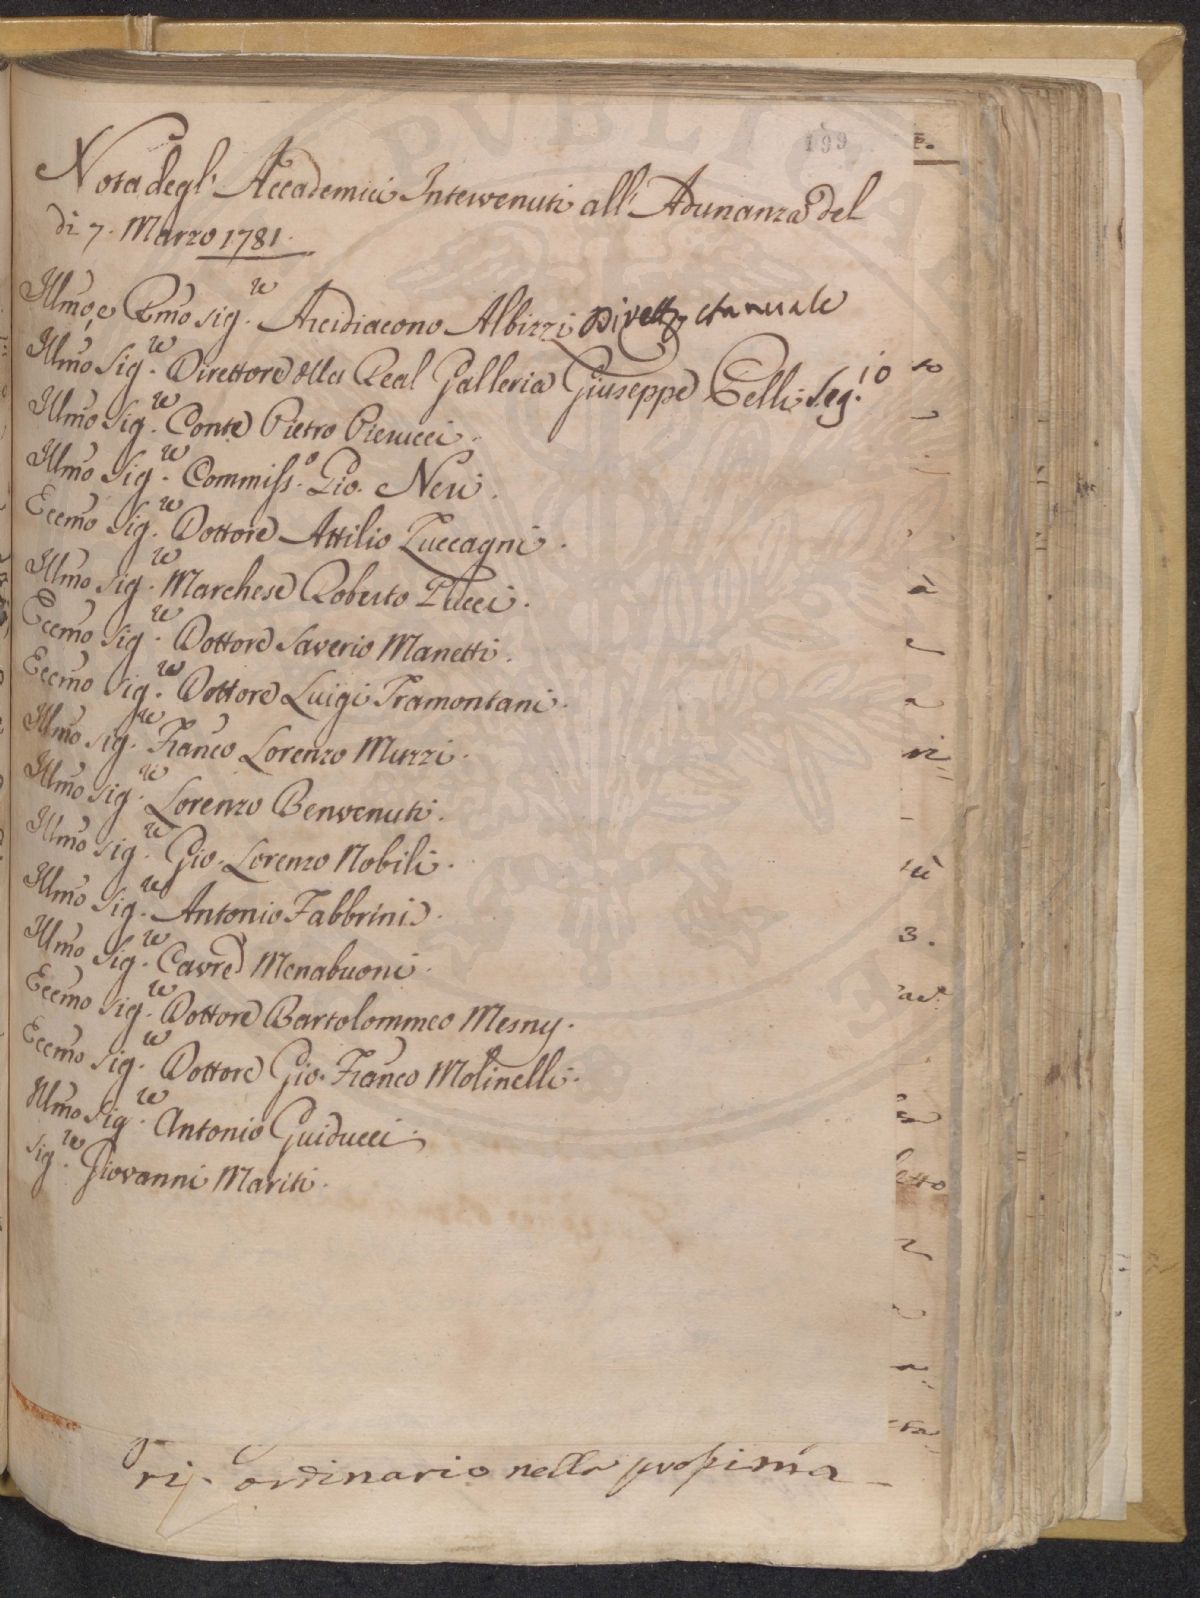 199
Nota degl' Accademici Intervenuti all' Adunanza del
di 7. Marzo 1781.
Illmo, e Rmo Sig.re Arcidiacono Albizzi Dirett.
Illmo Sig.re Direttore della Real Galleria Giuseppe Pelli Seg.io
Illmo Sig.re Conte Pietro Pierucci.
Illmo Sig.re Commiss.o Gio. Neri.
Eccmo Sig.re Dottore Attilio Zuccagni.
Illmo Sig.re Marchese Roberto Pucci.
Eccmo Sig.re Dottore Saverio Manetti.
Eccmo Sig.re Dottore Luigi Tramontani.
Illmo Sig.re Franco Lorenzo Muzzi.
Illmo Sig.re Lorenzo Benvenuti.
Illmo Sig.re Gio. Lorenzo Nobili.
Illmo Sig.re Antonio Fabbrini.
Illmo Sig.re Cavre Menabuoni.
Eccmo Sig.re Dottore Bartolommeo Mesny.
Eccmo Sig.re Dottore Gio. Franco Molinelli.
Illmo Sig.re Antonio Guiducci.
Sig.re Giovanni Mariti.
ordinario nella prossima